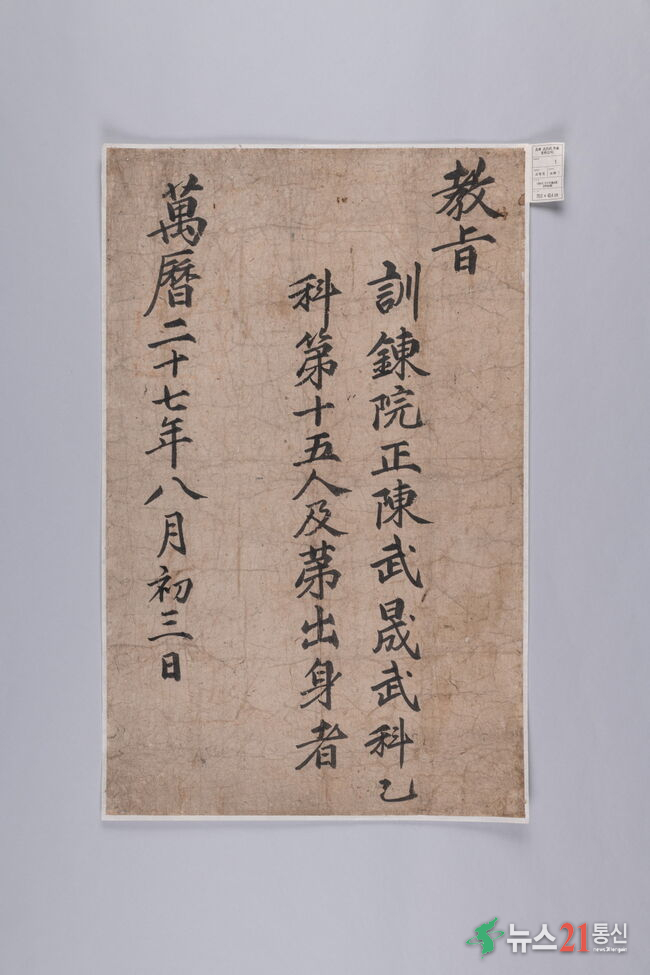 教旨
訓鍊院正陳武晟武科乙
科第十五人及苐出身者
萬曆二十七年八月初三日
뉴스21통신